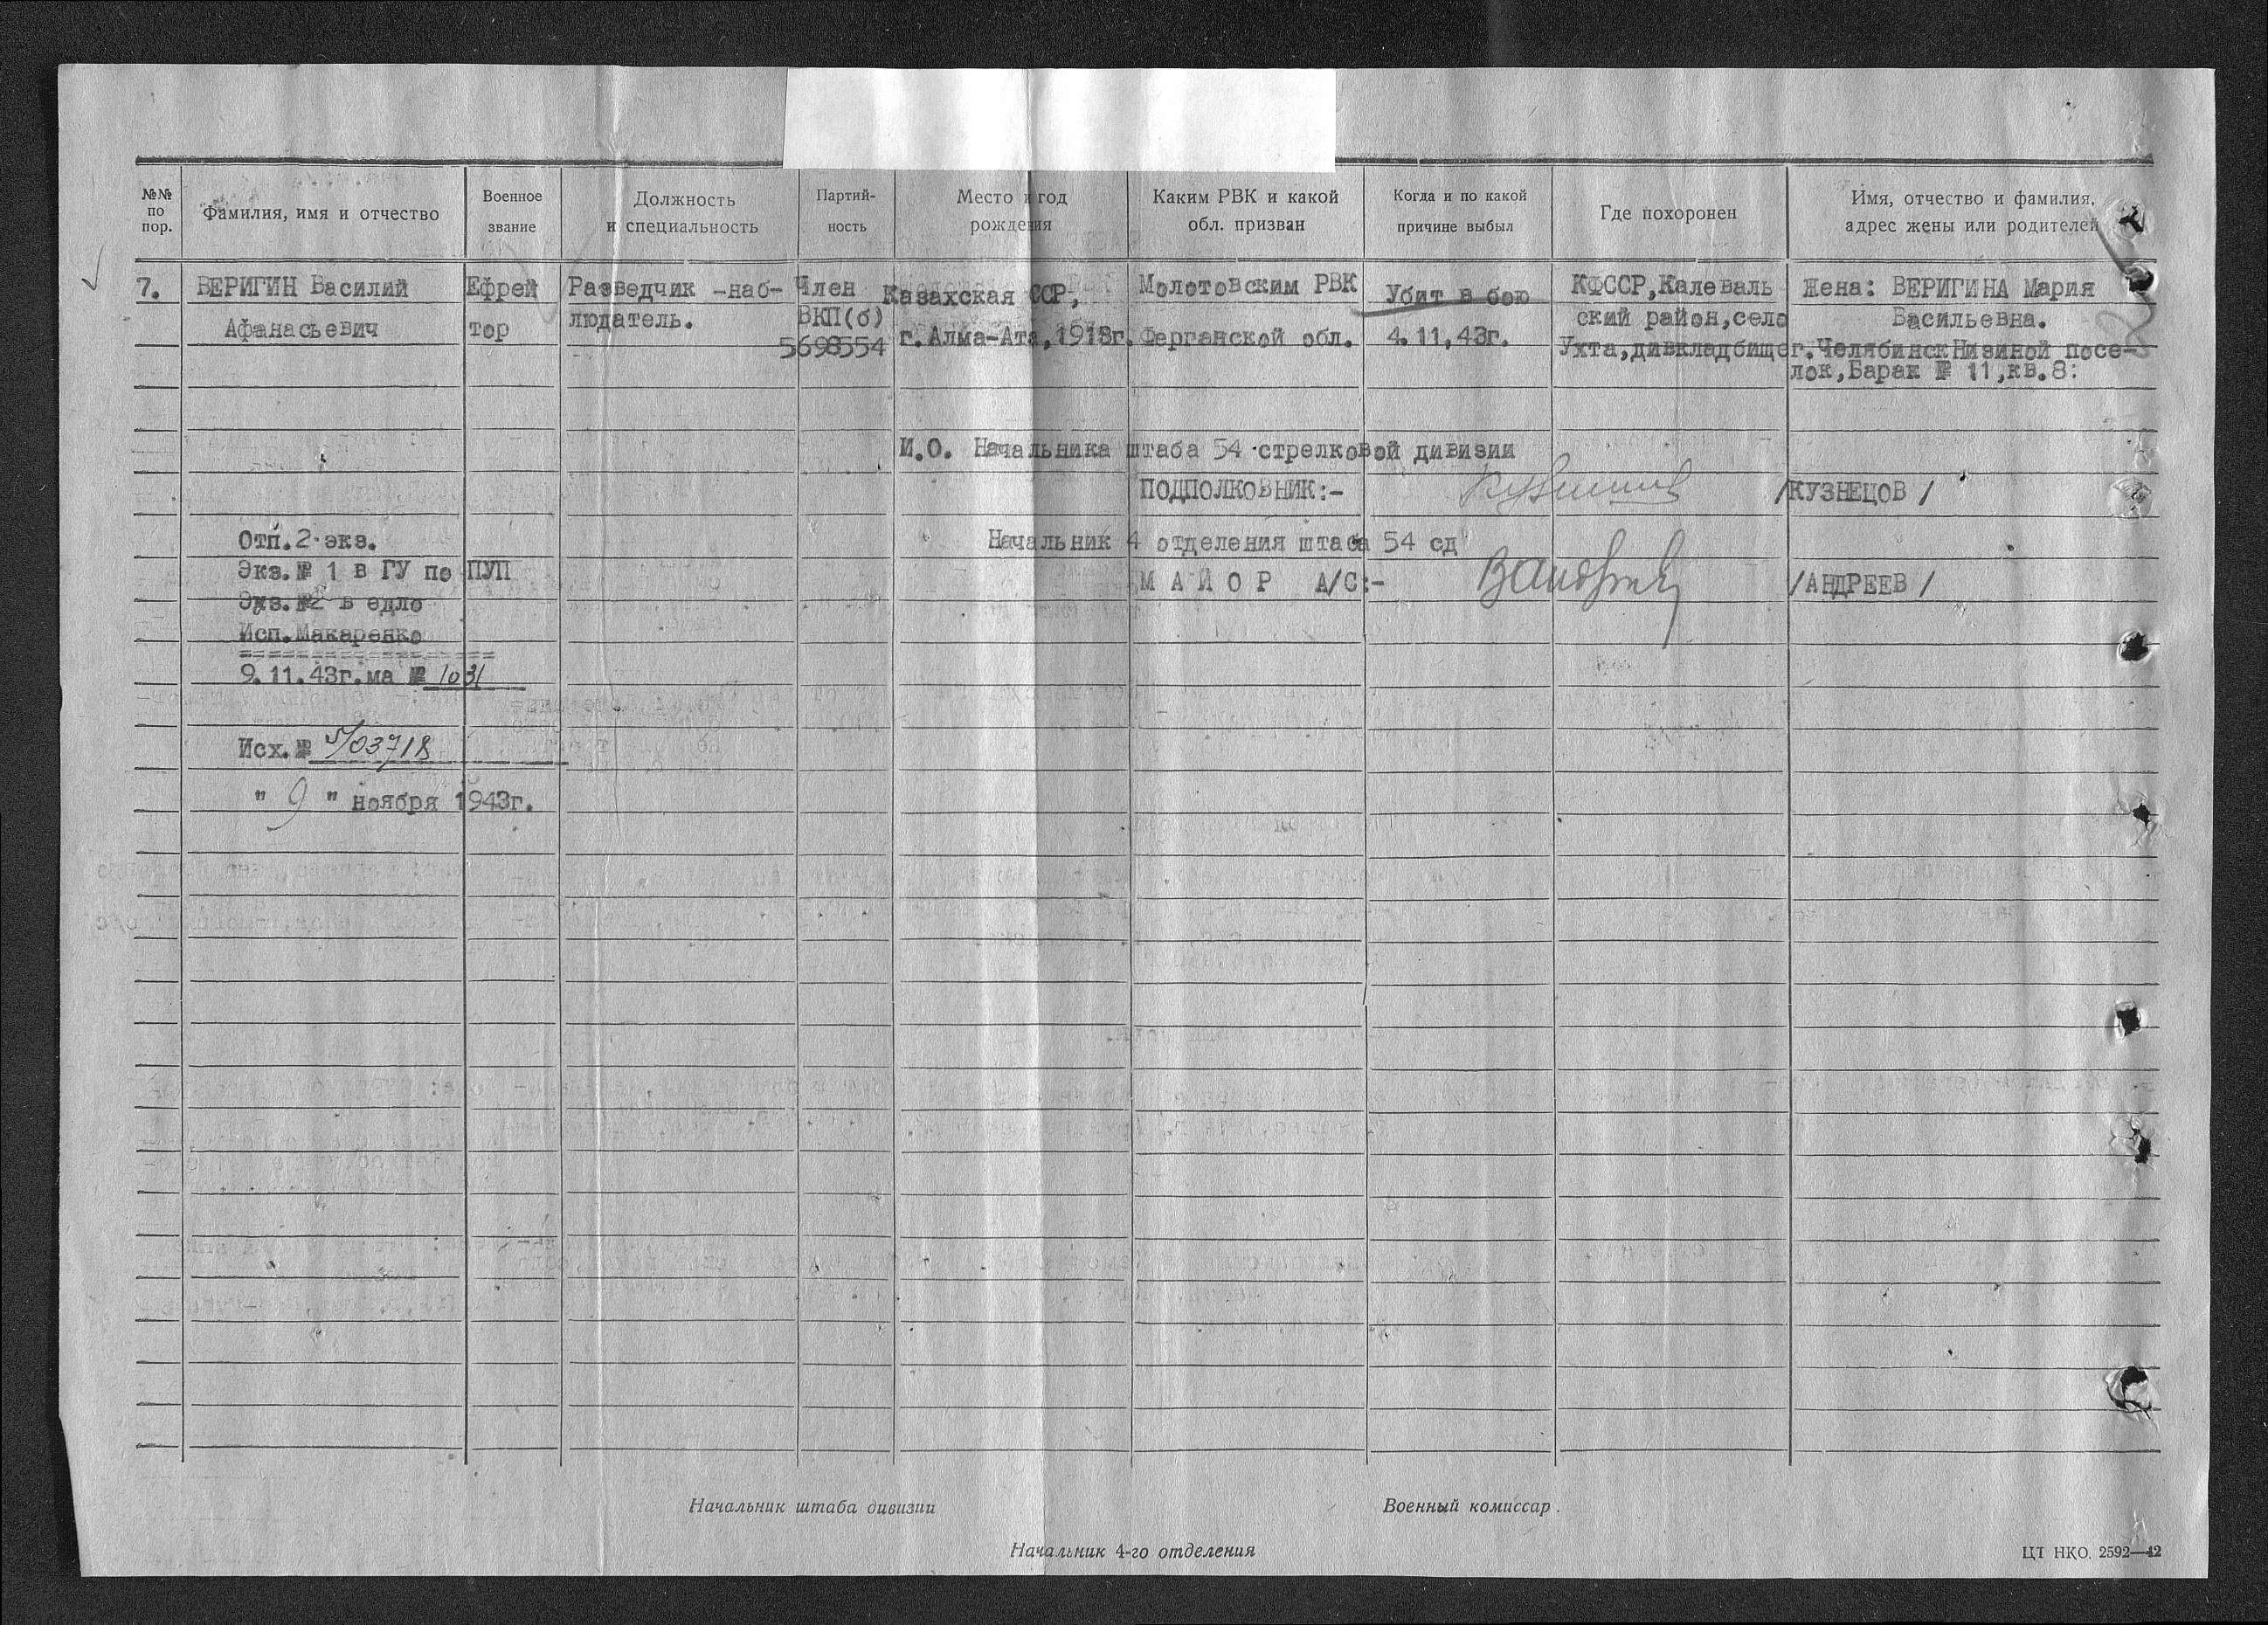 №№ по пор.
Фамилия, имя и отчество
Военное звание
Должность и специальность
Партий- ность
Место и год рождения
Каким РВК и какой обл. призван
Когда и по какой причине выбыл
Где похоронен
Имя, отчество и фамилия, адрес жены или родителей
7.
ВЕРИГИН Василий
Афанасьевич
Ефрей
тор
Разведчик -наб-
людатель.
Член
ВКП(б)
5698554
Казахская ССР,
г. Алма-Ата, 1918г.
Молотовским РВК
Ферганской обл.
Убит в бою
4.11,43г.
КФССР, Калеваль
ский район, село
Ухта, дивкладбище
Жена: ВЕРИГИНА Мария
Васильевна.
г. Челябинск Низиной посе-
лок, Барак № 11, кв. 8:
И.О. Начальника штаба 54 стрелковой дивизии
ПОДПОЛКОВНИК:- /КУЗНЕЦОВ /
Начальник 4 отделения штаба 54 сд
М А Й О Р А/С:- /АНДРЕЕВ /
Отп. 2 экз.
Экз. № 1 в ГУ по ПУП
Экз. №2 в едло
Исп. Макаренко
==================
9.11.43г. ма № 1031
Исх. № 5/03718
" 9 " ноября 1943г.
Начальник штаба дивизии
Военный комиссар.
Начальник 4-го отделения
ЦТ НКО. 2592—42